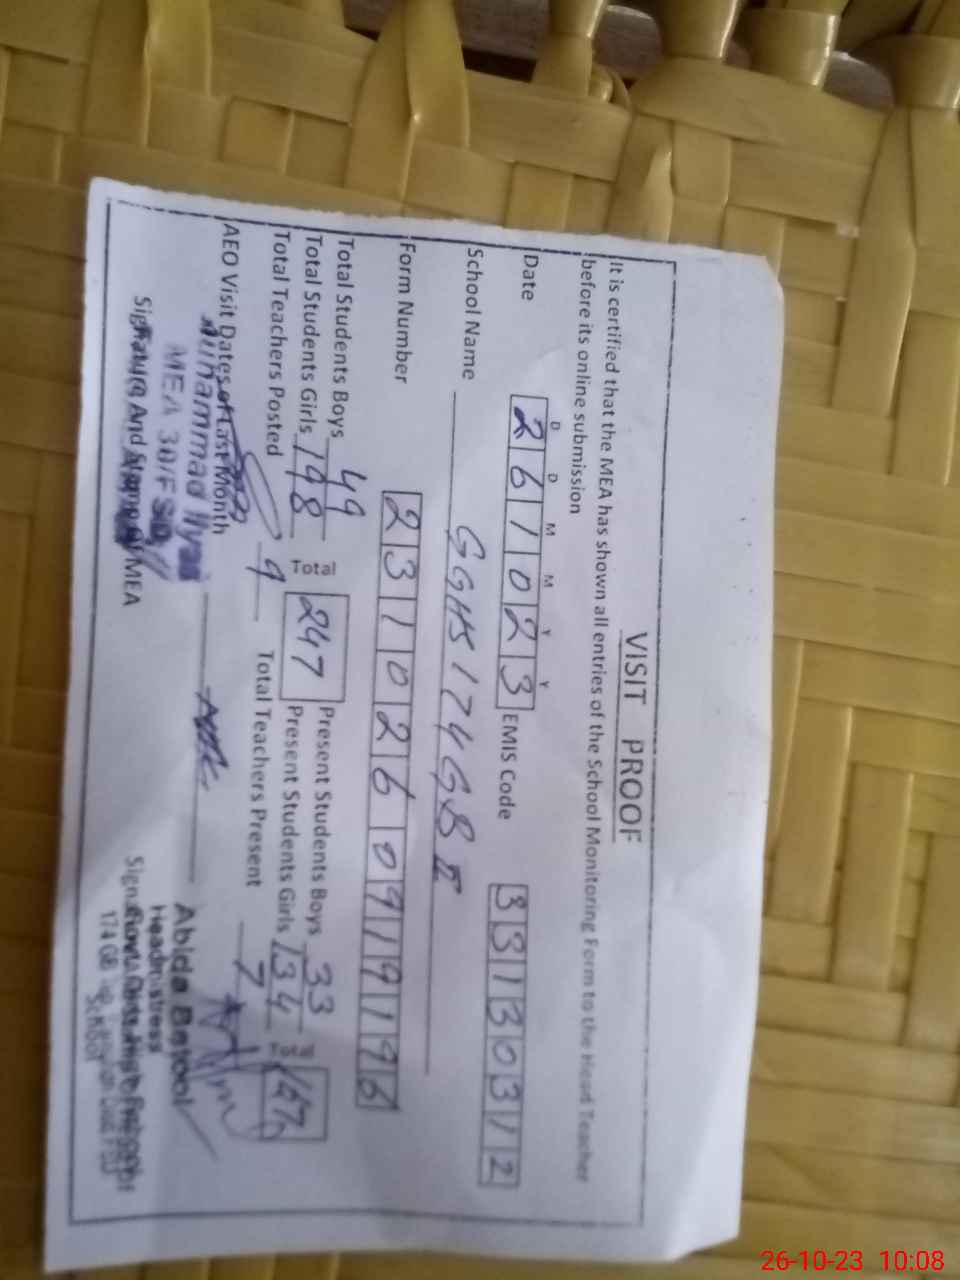 VISIT PROOF
It is certified that the MEA has shown all entries of the School Monitoring Form to the Head Teacher
before its online submission
D D M M Y Y
Date 261023 EMIS Code 33130312
School Name GGHS 174GB II
Form Number 2310260919196
Total Students Boys 49 Total 247 Present Students Boys 33 Total 167
Total Students Girls 198 Present Students Girls 134
Total Teachers Posted 9 Total Teachers Present 7
AEO Visit Dates of Last Month
Muhammad Ilyas
MEA 30/FSD
Signature And Stamp of MEA
Abida Batool
Headmistress
174 GB
School
26-10-23 10:08